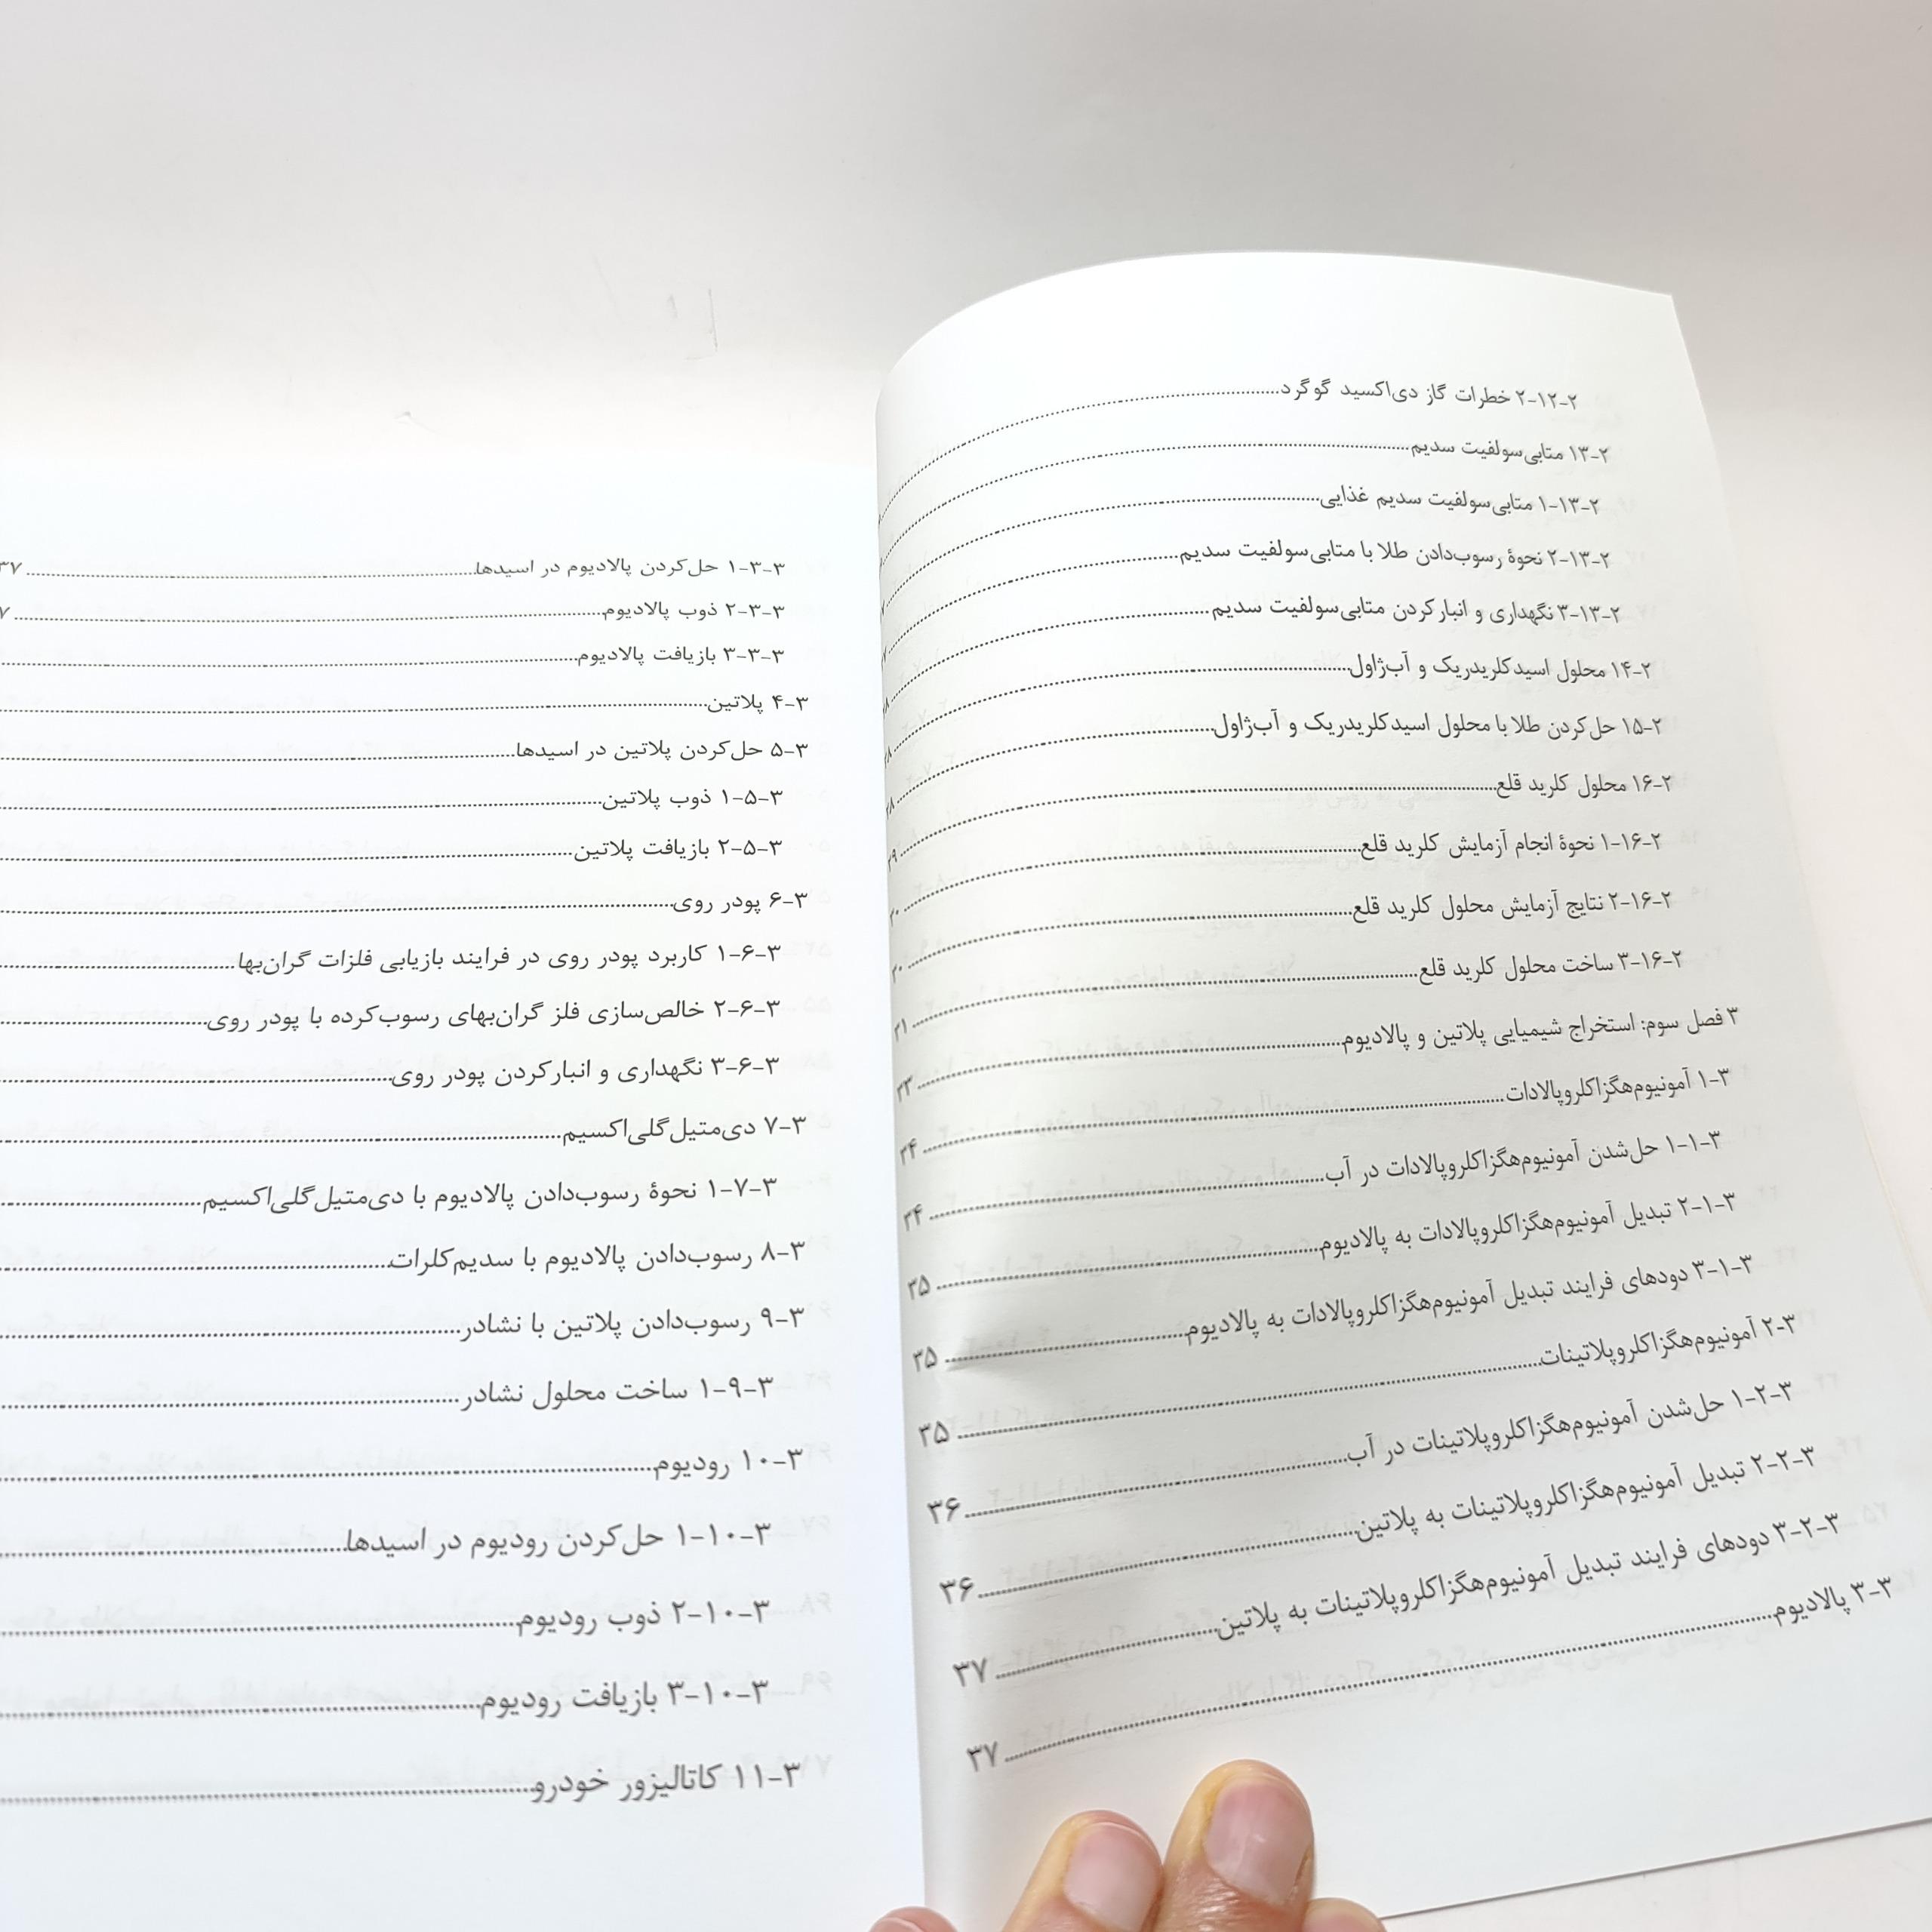 ۲-۱۲-۲ خطرات گاز دی‌اکسید گوگرد
۱۳-۲ متابی‌سولفیت سدیم
۱-۱۳-۲ متابی‌سولفیت سدیم غذایی
۲-۱۳-۲ نحوۀ رسوب‌دادن طلا با متابی‌سولفیت سدیم
۳-۱۳-۲ نگهداری و انبارکردن متابی‌سولفیت سدیم
۱۴-۲ محلول اسیدکلریدریک و آب‌ژاول
۱۵-۲ حل‌کردن طلا با محلول اسیدکلریدریک و آب‌ژاول
۱۶-۲ محلول کلرید قلع
۱-۱۶-۲ نحوۀ انجام آزمایش کلرید قلع
۲-۱۶-۲ نتایج آزمایش محلول کلرید قلع
۳-۱۶-۲ ساخت محلول کلرید قلع
۳ فصل سوم: استخراج شیمیایی پلاتین و پالادیوم ۳۳
۱-۳ آمونیوم‌هگزاکلروپالادات ۳۴
۱-۱-۳ حل‌شدن آمونیوم‌هگزاکلروپالادات در آب ۳۴
۲-۱-۳ تبدیل آمونیوم‌هگزاکلروپالادات به پالادیوم ۳۵
۳-۱-۳ دودهای فرایند تبدیل آمونیوم‌هگزاکلروپالادات به پالادیوم ۳۵
۲-۳ آمونیوم‌هگزاکلروپلاتینات ۳۵
۱-۲-۳ حل‌شدن آمونیوم‌هگزاکلروپلاتینات در آب ۳۶
۲-۲-۳ تبدیل آمونیوم‌هگزاکلروپلاتینات به پلاتین ۳۶
۳-۲-۳ دودهای فرایند تبدیل آمونیوم‌هگزاکلروپلاتینات به پلاتین ۳۷
۳-۳ پالادیوم ۳۷
۱-۳-۳ حل‌کردن پالادیوم در اسیدها ۳۷
۲-۳-۳ ذوب پالادیوم
۳-۳-۳ بازیافت پالادیوم
۴-۳ پلاتین
۵-۳ حل‌کردن پلاتین در اسیدها
۱-۵-۳ ذوب پلاتین
۲-۵-۳ بازیافت پلاتین
۶-۳ پودر روی
۱-۶-۳ کاربرد پودر روی در فرایند بازیابی فلزات گران‌بها
۲-۶-۳ خالص‌سازی فلز گران‌بهای رسوب‌کرده با پودر روی
۳-۶-۳ نگهداری و انبارکردن پودر روی
۷-۳ دی‌متیل‌گلی‌اکسیم
۱-۷-۳ نحوۀ رسوب‌دادن پالادیوم با دی‌متیل‌گلی‌اکسیم
۸-۳ رسوب‌دادن پالادیوم با سدیم‌کلرات
۹-۳ رسوب‌دادن پلاتین با نشادر
۱-۹-۳ ساخت محلول نشادر
۱۰-۳ رودیوم
۱-۱۰-۳ حل‌کردن رودیوم در اسیدها
۲-۱۰-۳ ذوب رودیوم
۳-۱۰-۳ بازیافت رودیوم
۱۱-۳ کاتالیزور خودرو